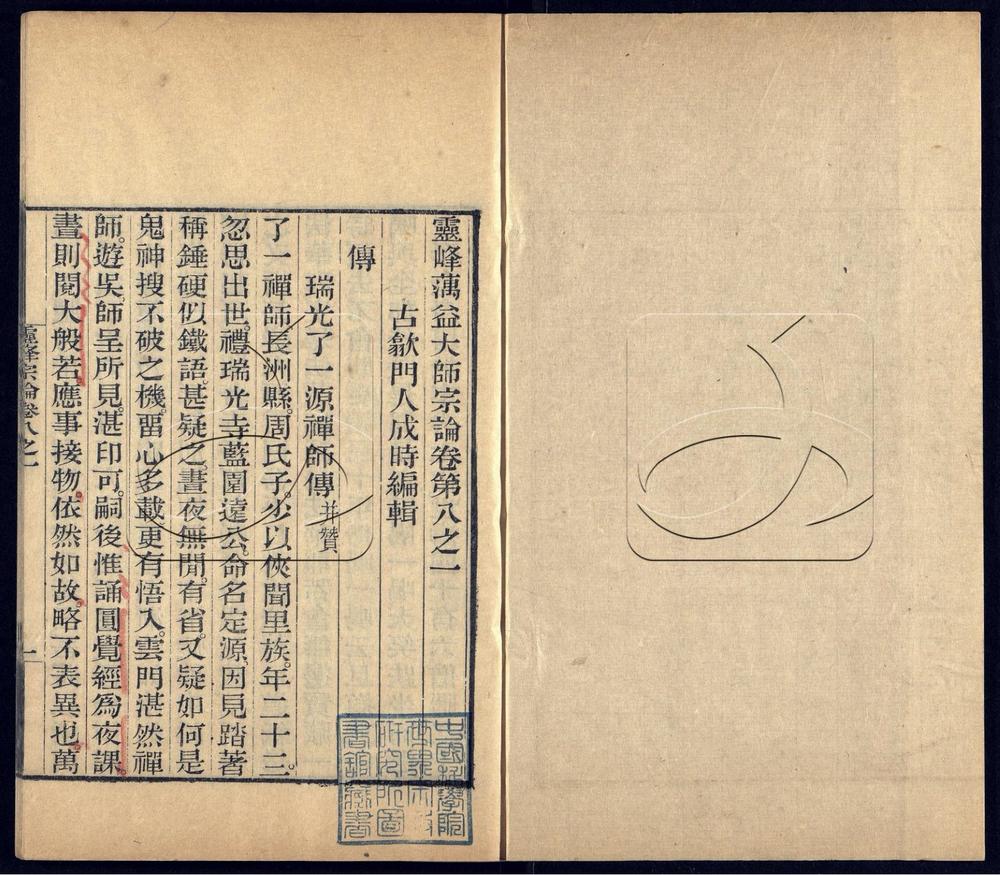 靈峰蕅益大師宗論卷第八之二
古歙門人成時編輯
傳
瑞光了一源禪師傳 并贊
了一禪師長洲縣周氏子少以俠聞里族年二十三
忽思出世禮瑞光寺藍園遠公命名定源因見踏著
稱錘硬似鐵語甚疑之晝夜無閒有省又疑如何是
鬼神搜不破之機畱心多載更有悟入雲門湛然禪
師遊吳師呈所見湛印可嗣後惟誦圓覺經爲夜課
晝則閱大般若應事接物依然如故略不表異也萬
靈峰宗論卷八之二
一